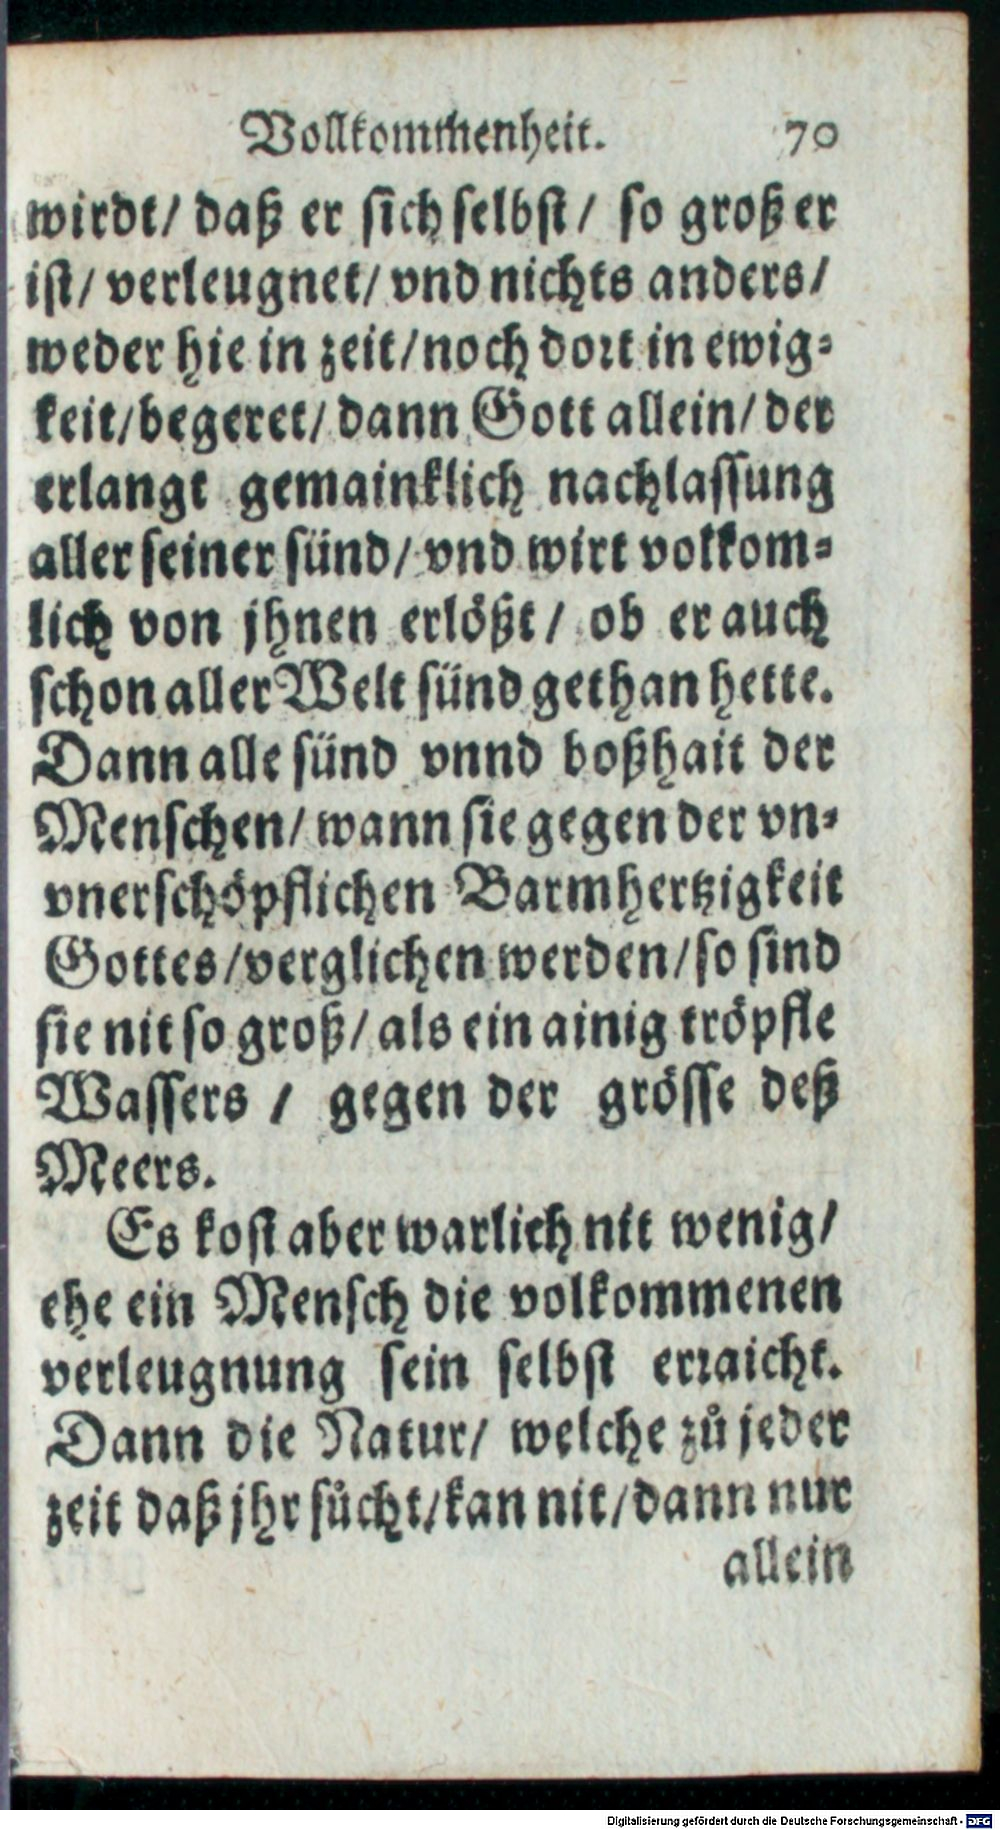 Vollkommenheit. 70
wirdt/ daß er sich selbst/ so groß er
ist/ verleugnet/ vnd nichts anders/
weder hie in zeit/ noch dort in ewig-
keit/ begeret/ dann Gott allein/ der
erlangt gemainklich nachlassung
aller seiner sünd/ vnd wirt volkom-
lich von jhnen erlößt/ ob er auch
schon aller Welt sünd gethan hette.
Dann alle sünd vnnd boßhait der
Menschen/ wann sie gegen der vn-
vnerschöpflichen Barmhertzigkeit
Gottes/ verglichen werden/ so sind
sie nit so groß/ als ein ainig tröpfle
Wassers / gegen der grösse deß
Meers.
Es kost aber warlich nit wenig/
ehe ein Mensch die volkommenen
verleugnung sein selbst erraicht.
Dann die Natur/ welche zů jeder
zeit daß jhr sůcht/ kan nit/ dann nur
allein
Digitalisierung gefördert durch die Deutsche Forschungsgemeinschaft - DFG